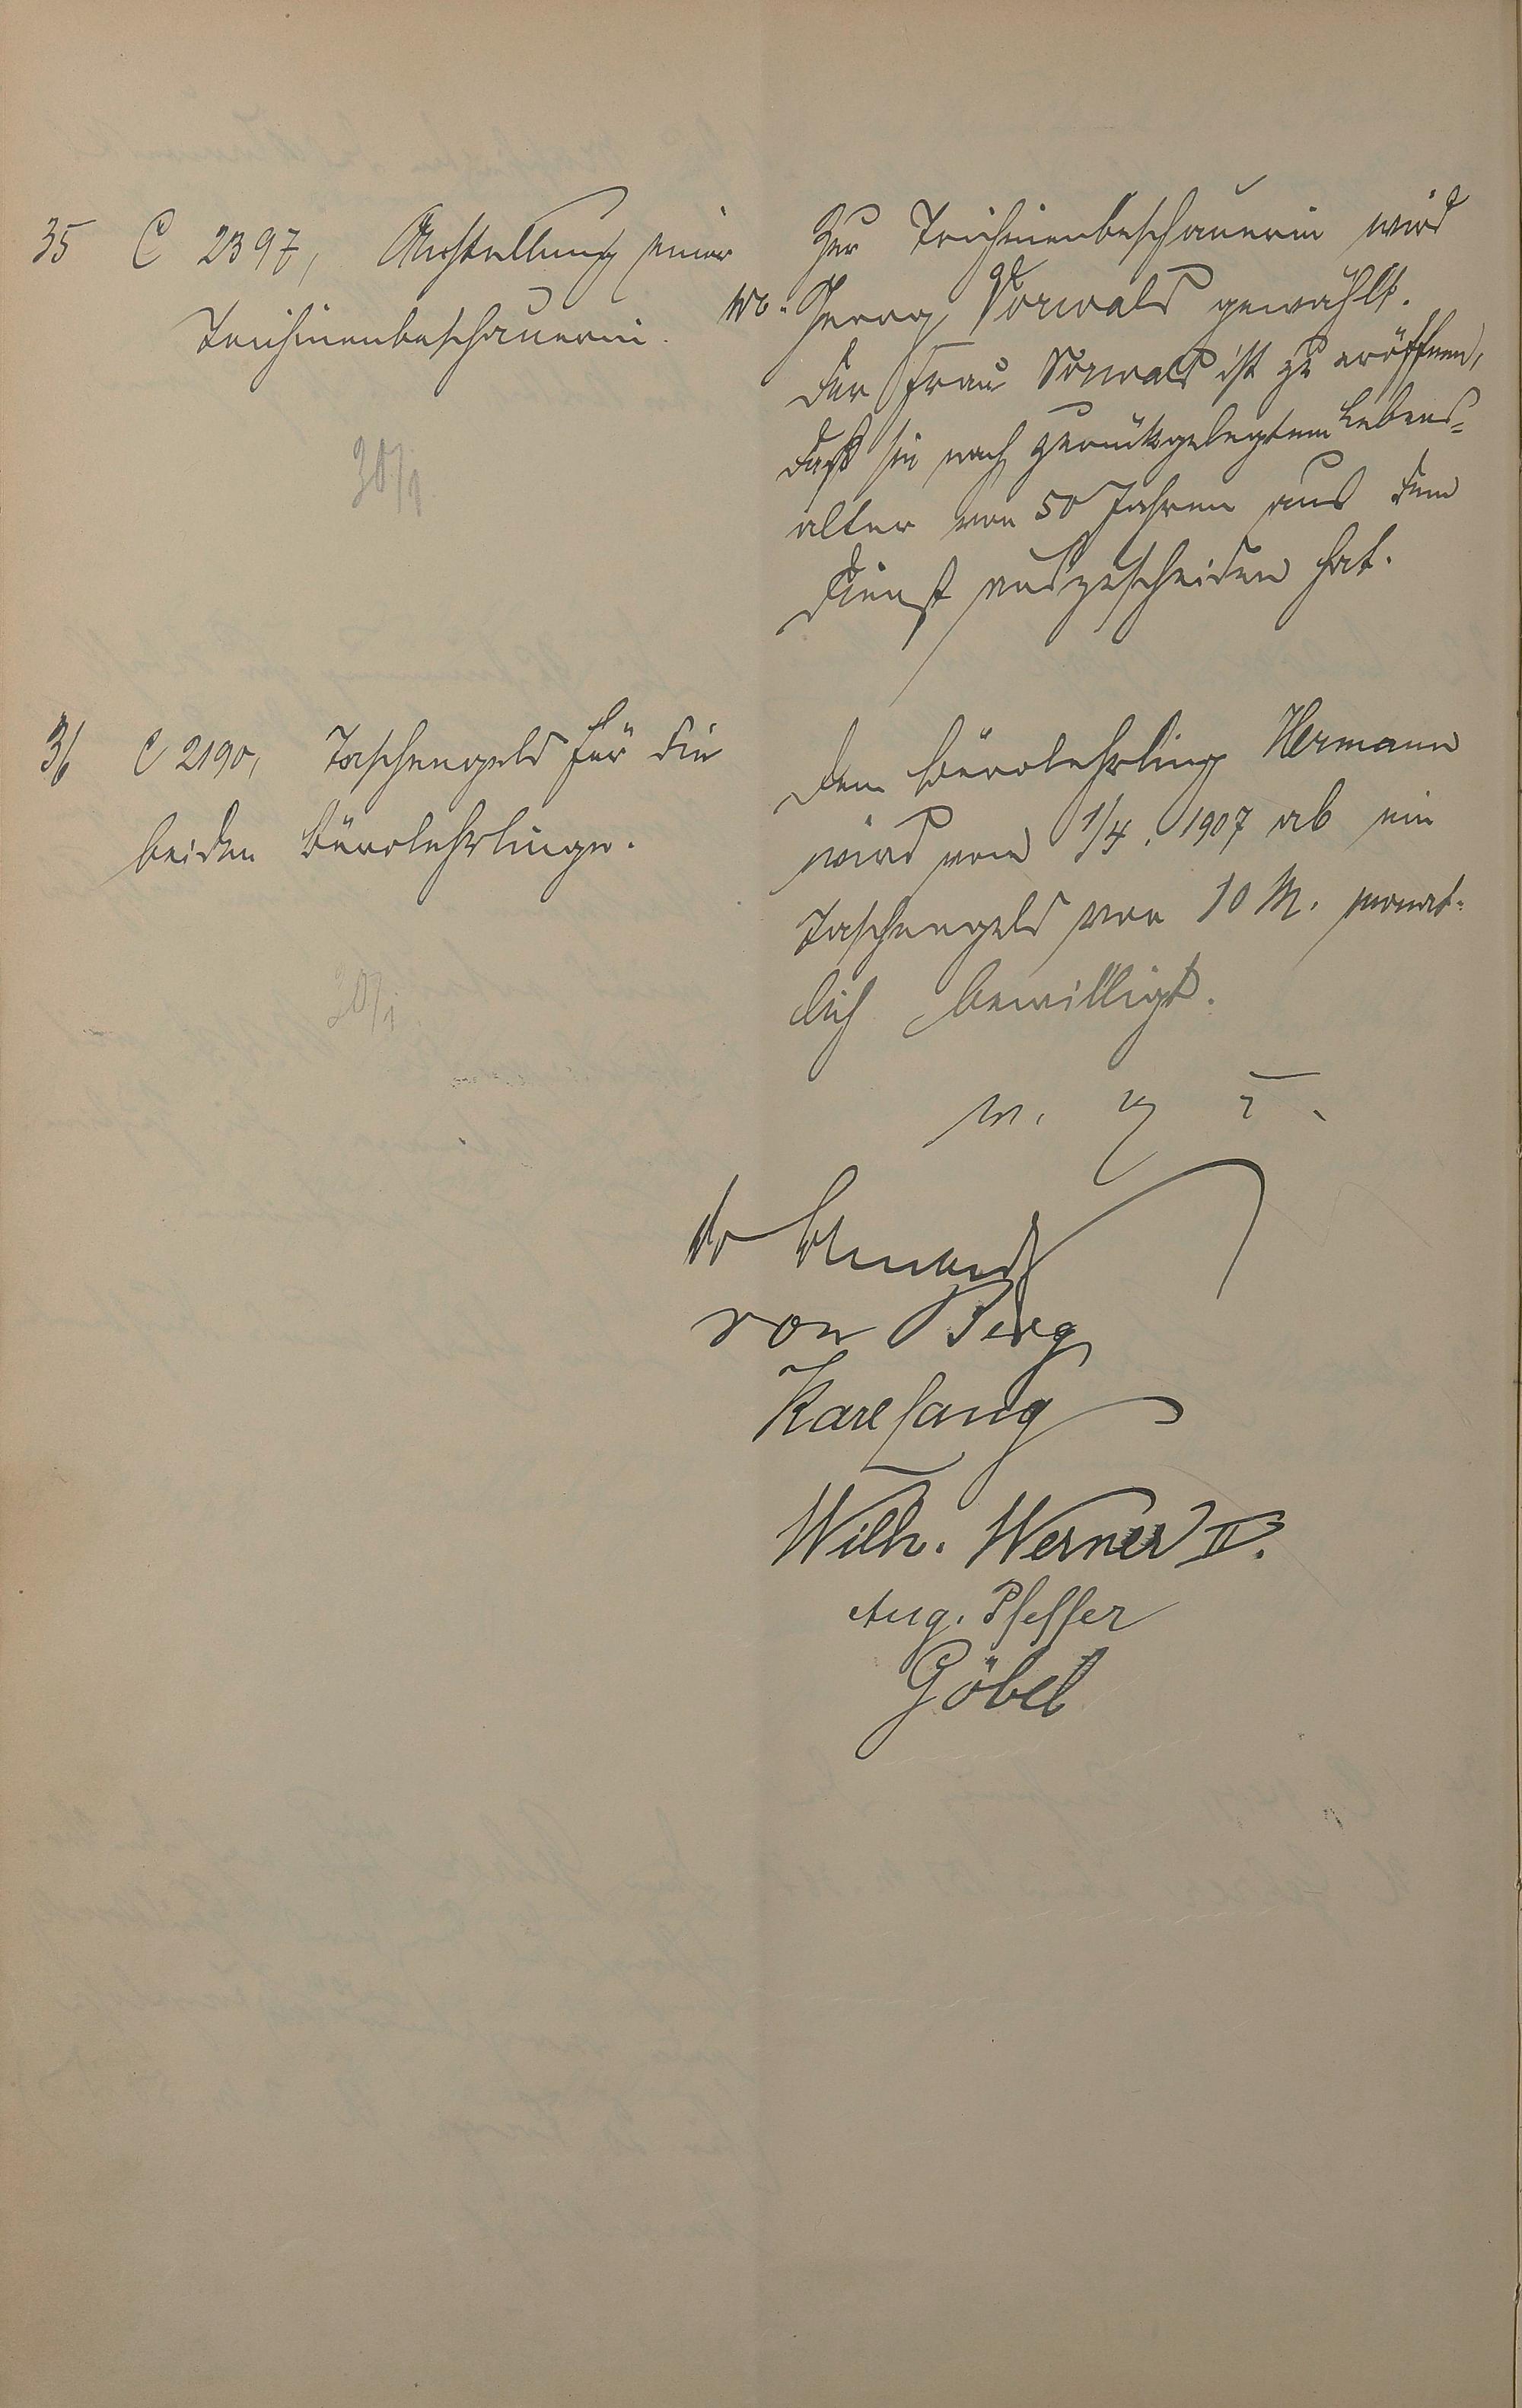 35 C 2397, Anstellung einer
Trichinenbeschauerin.
30/1
Zur Trichinenbeschauerin wird
Georg Vorwald gewählt.
Der Frau Vorwald ist zu eröffnen,
daß sie nach zurückgelegtem Lebens-
alter von 50 Jahren aus dem
Dienst auszuscheiden hat.
36 C 2190, Taschengeld für die
beiden Bürolehrlinge.
30/1
Dem Bürolehrling Hermann
wird vom 1/4. 1907 ab ein
Taschengeld von 10 M. monat-
lich bewilligt.
v. g. u.
von Berg
Karl Lang
Wilh. Werner II.
Aug. Pfeffer
Göbel